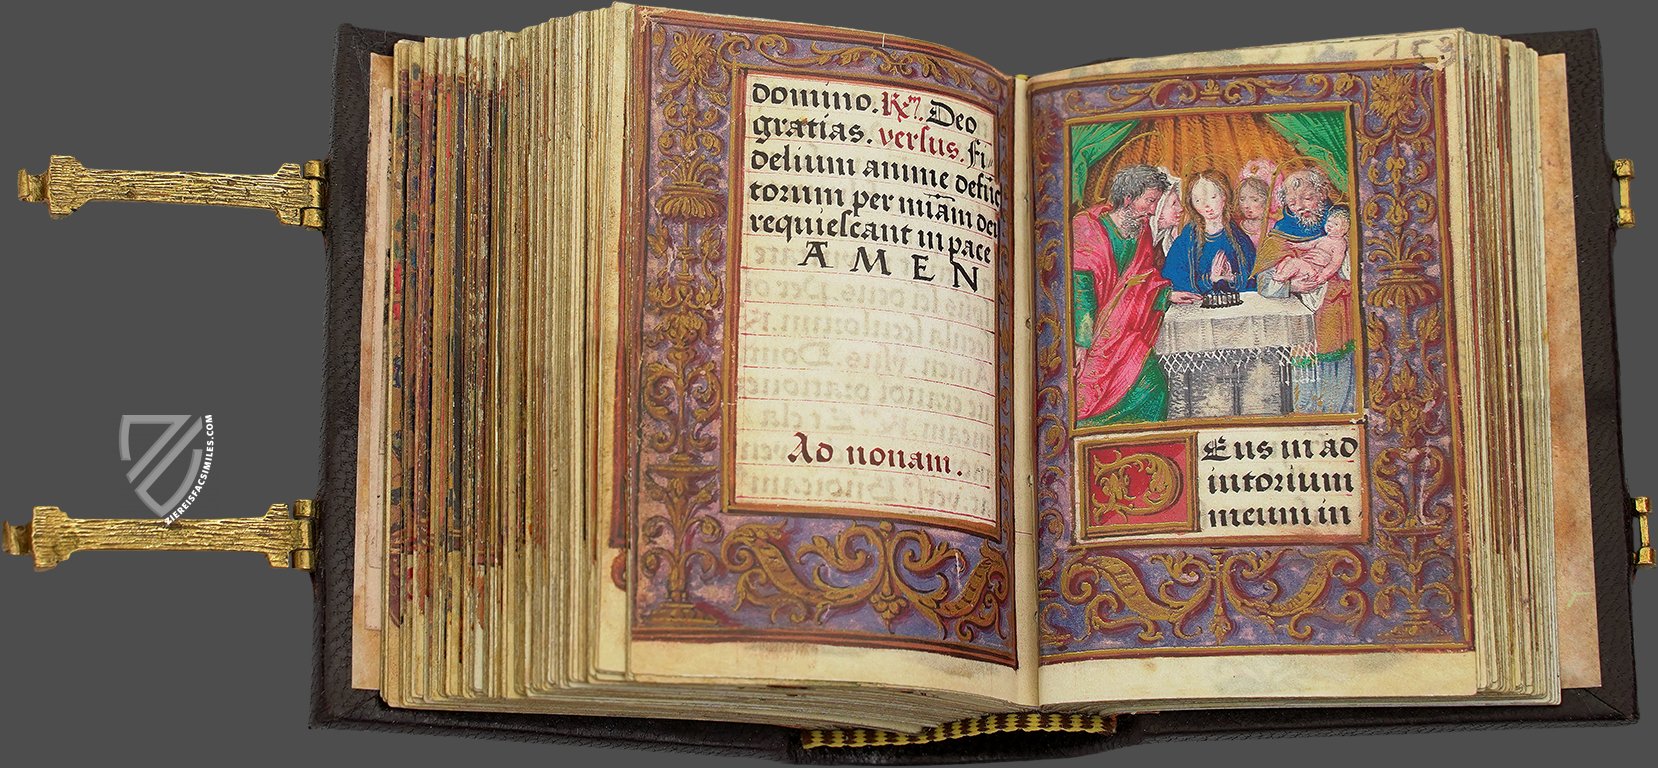 domino. R̃. Deo
gratias. versus. Fi
delium anime defūc
torum per miãm dei
requiescant in pace
AMEN
Ad nonam.
Deus in ad
iutorium
meum in
ZIEREISFACSIMILES.COM